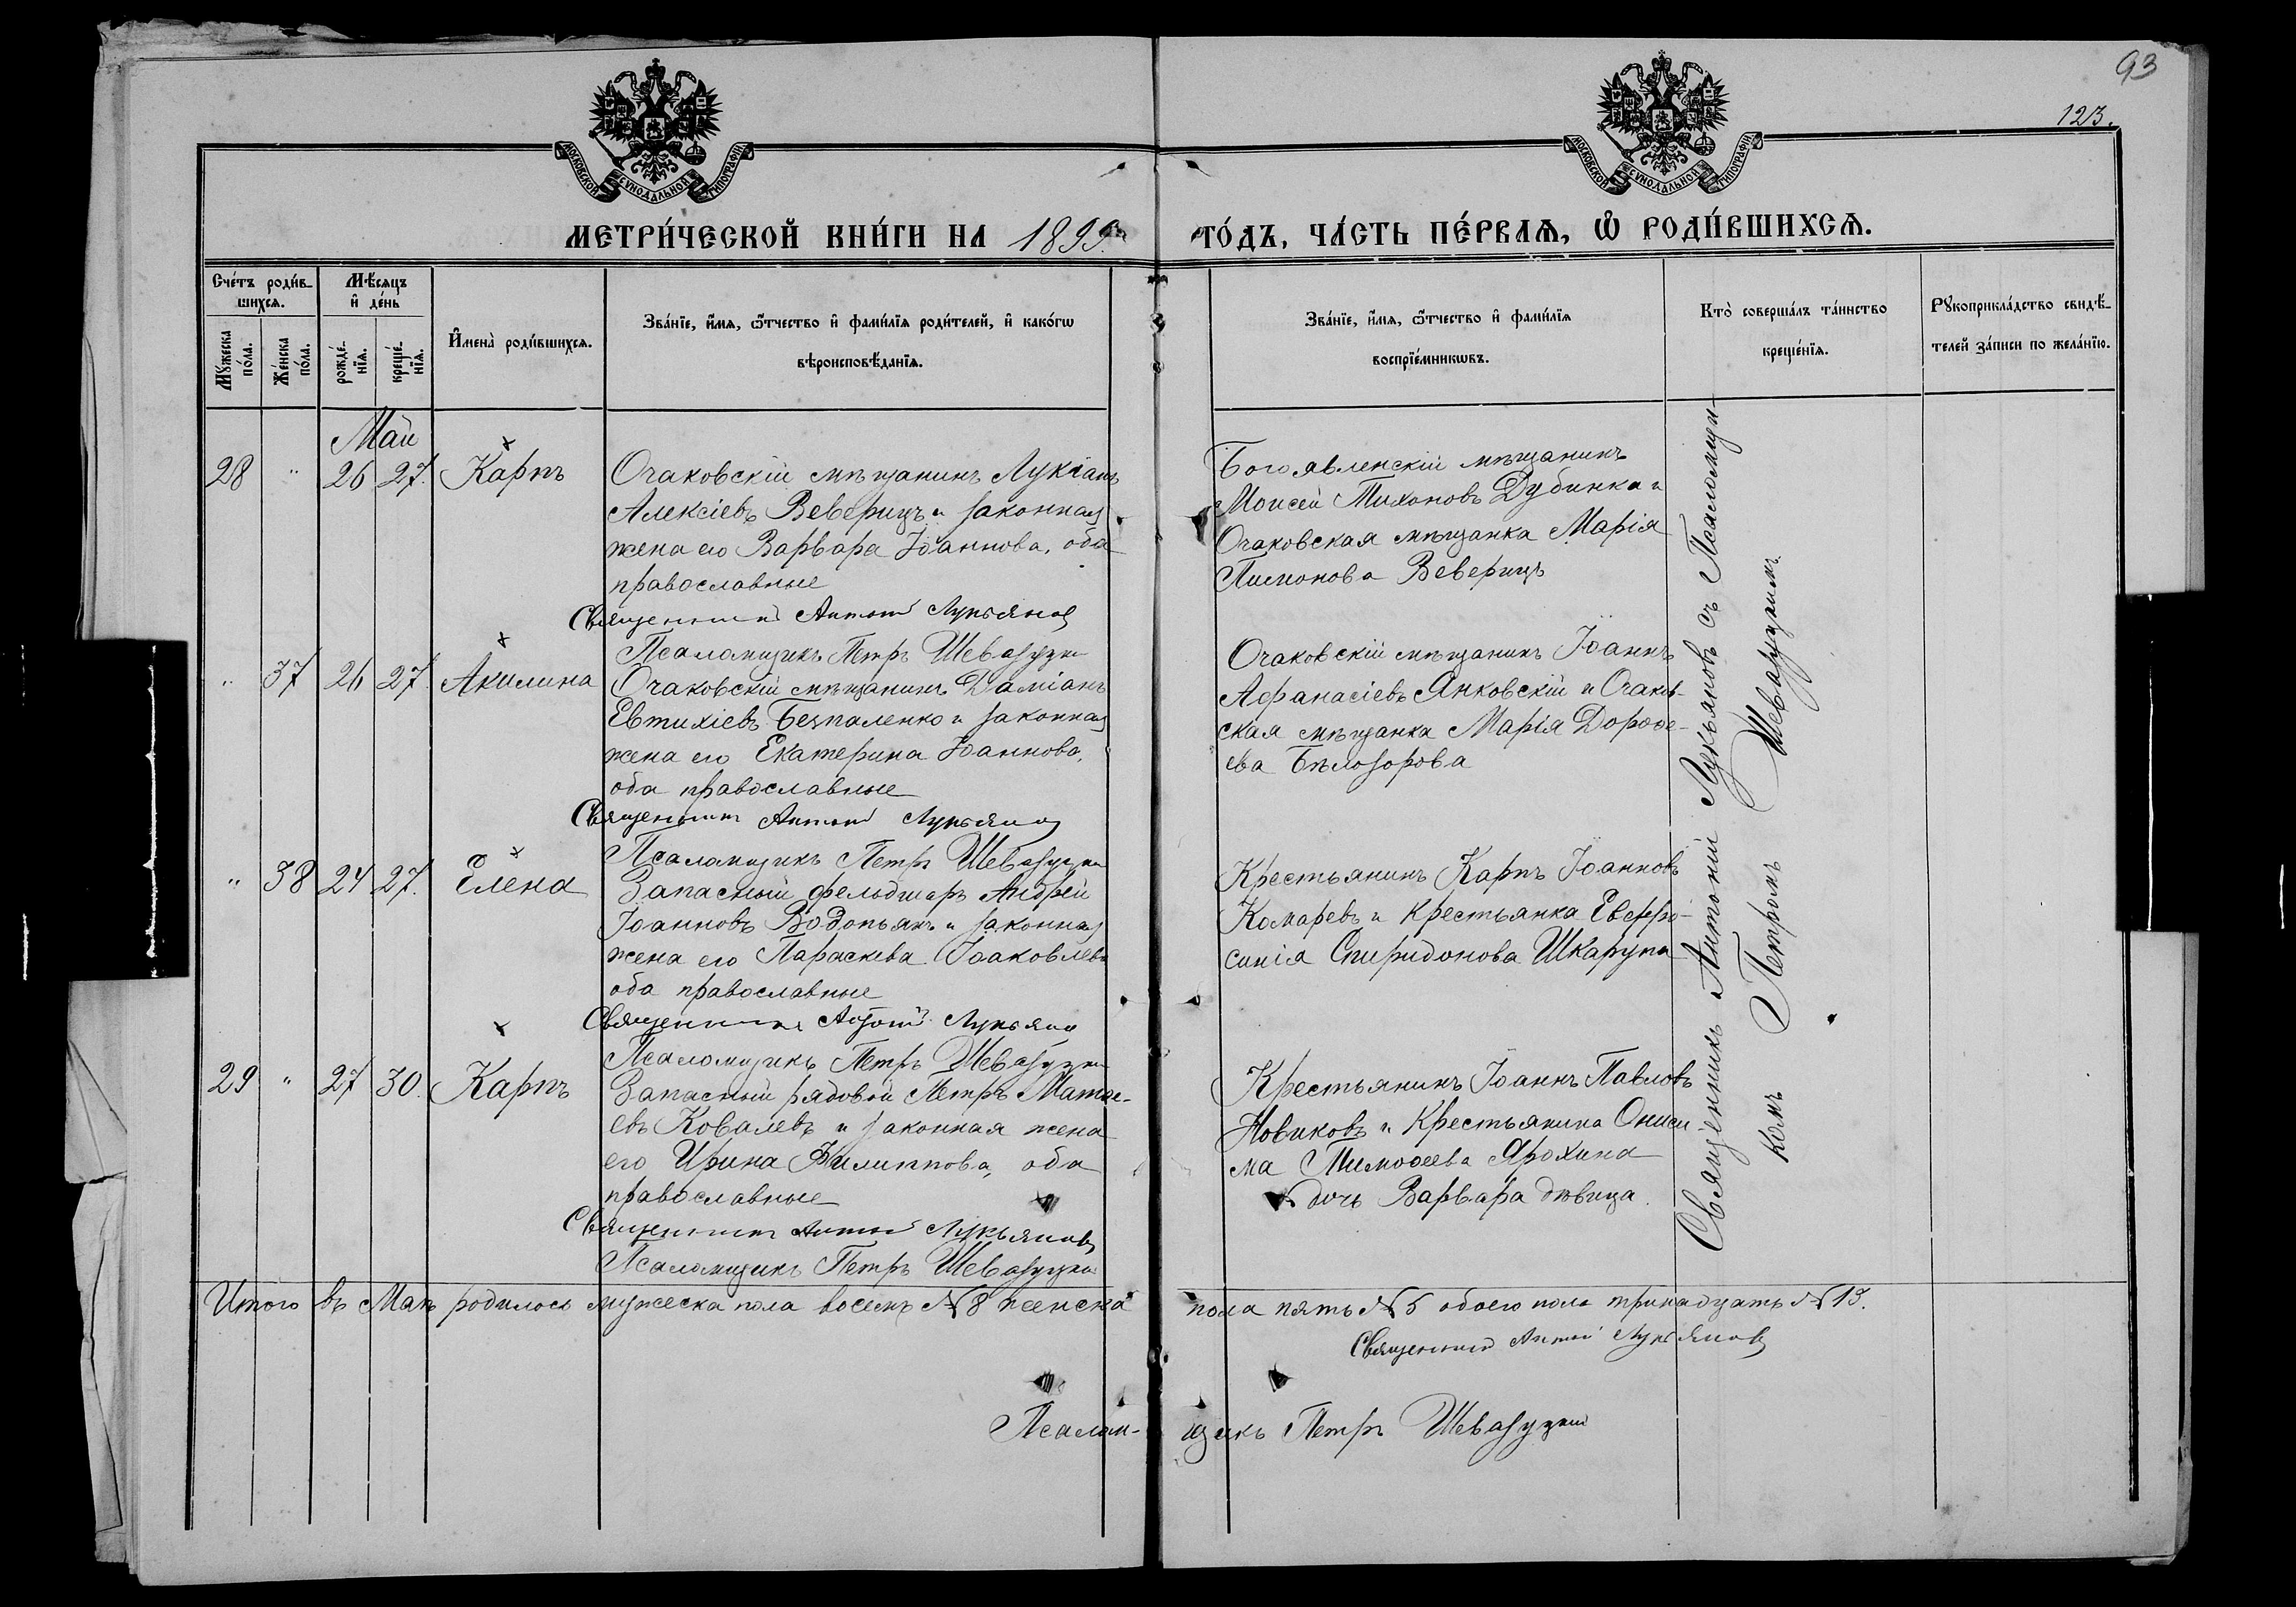 93
123.
МОСКОВСКОЙ СѴНОДАЛЬНОЙ ТИПОГРАФІИ
МОСКОВСКОЙ СѴНОДАЛЬНОЙ ТИПОГРАФІИ
МЕТРИ́ЧЕСКОЙ КНИ́ГИ НА 1899 ГО́ДЪ, ЧА́СТЬ ПЕ́РВАѦ, Ѡ҆ РОДИ́ВШИХСѦ.
Сче́тъ роди́в-
шихсѧ.
Мꙋжеска по́ла.
Же́нска по́ла.
Мѣ́сѧцъ
и҆ де́нь
рожде́-
нїѧ.
креще́-
нїѧ.
И҆мена̀ роди́вшихсѧ.
Зва́нїе, и҆́мѧ, ѻ҆́тчество и҆ фами́лїѧ роди́телей, и҆ како́гѡ
вѣроисповѣ́данїѧ.
Зва́нїе, и҆́мѧ, ѻ҆́тчество и҆ фами́лїѧ
воспрїе́мникѡвъ.
Кто̀ соверша́лъ та́инство
креще́нїѧ.
Рꙋкоприкла́дство свидѣ́-
телей за́писи по жела́нїю.
Май
28 " 26 27. Карпъ
Очаковскій мѣщанинъ Лукіанъ
Алексіевъ Веверицъ и законная
жена его Варвара Іоаннова, оба
православные
Священникъ Антоній Лукьяновъ
Псаломщикъ Петръ Шевазуцкій
Богоявленскій мѣщанинъ
Моисей Тихоновъ Дубинка и
Очаковская мѣщанка Марія
Пимонова Веверицъ
" 37 26 27. Акилина
Очаковскій мѣщанинъ Даміанъ
Евтихіевъ Безпаленко и законная
жена его Екатерина Іоаннова,
оба православные
Священникъ Антоній Лукьяновъ
Псаломщикъ Петръ Шевазуцкій
Очаковскій мѣщанинъ Іоаннъ
Афанасіевъ Янковскій и Очаков-
ская мѣщанка Марія Дороѳе-
ева Бѣлозорова
" 38 24 27. Елена
Запасный фельдшеръ Андрей
Іоанновъ Водопьянъ и законная
жена его Параскева Іоаковлева
оба православные
Священникъ Антоній Лукьяновъ
Псаломщикъ Петръ Шевазуцкій
Крестьянинъ Карпъ Іоанновъ
Комаревъ и крестьянка Евфро-
синія Спиридонова Шкарупа
29 " 27 30. Карпъ
Запасный рядовой Петръ Матѳе-
евъ Ковалевъ и законная жена
его Ирина Филиппова, оба
православные
Священникъ Антоній Лукьяновъ
Псаломщикъ Петръ Шевазуцкій
Крестьянинъ Іоаннъ Павловъ
Новиковъ и крестьянина Ониси-
ма Тимоѳеева Ярохина
дочь Варвара дѣвица.
Священникъ Антоній Лукьяновъ съ Псаломщи-
комъ Петромъ Шевазуцкимъ
Итого въ Маѣ родилось мужеска пола восемь № 8 женска пола пять № 5 обоего пола тринадцать № 13.
Священникъ Антоній Лукьяновъ
Псалом- щикъ Петръ Шевазуцкій